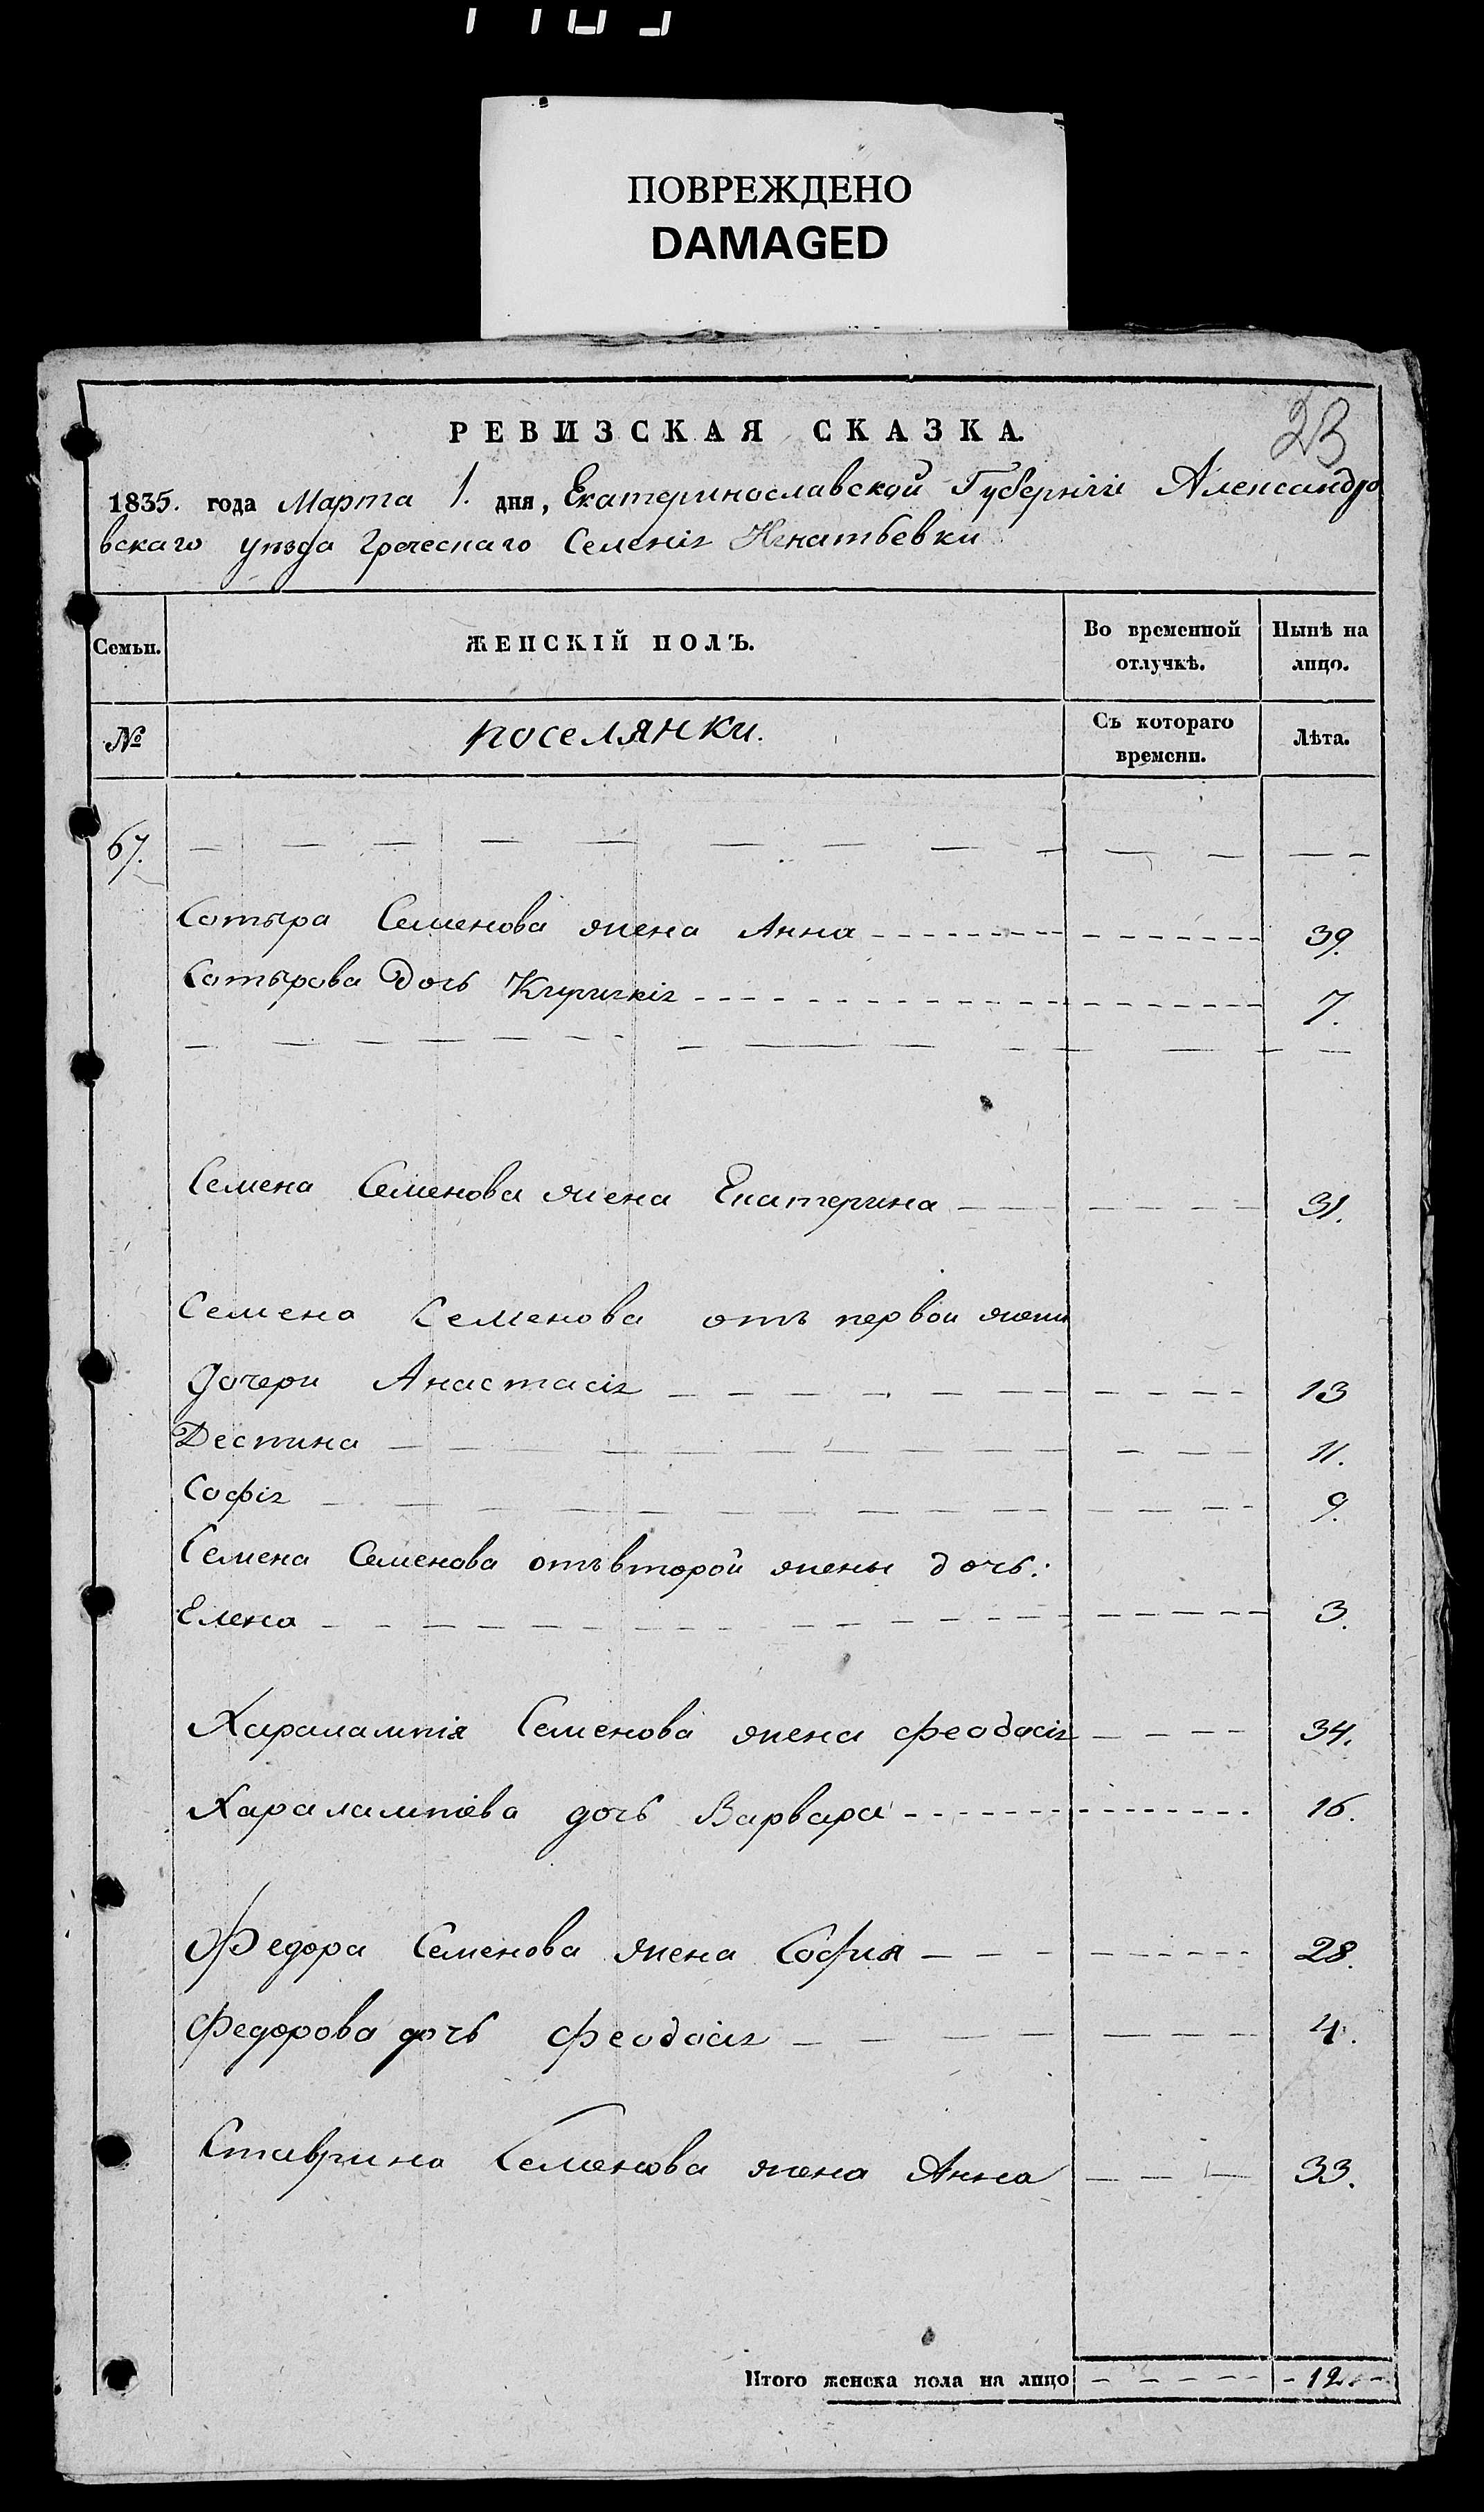 ПОВРЕЖДЕНО
DAMAGED
23
РЕВИЗСКАЯ СКАЗКА.
1835. года Марта 1. дня, Екатеринославской Губерніи Александро
вскаго уѣзда Греческаго Селенія Игнатьевки
Семьи. ЖЕНСКІЙ ПОЛЪ. Во временной отлучкѣ. Нынѣ на лицо.
№ поселянки. Съ котораго времени. Лѣта.
67.
Сотыра Семенова жена Анна 39.
Сотырова дочь Киріакія 7.
Семена Семенова жена Екатерина 31.
Семена Семенова отъ первой жены
дочери Анастасія 13
Деспина 11.
Софія 9.
Семена Семенова отъ второй жены дочь:
Елена 3.
Харалампія Семенова жена Феодосія 34.
Харалампіева дочь Варвара 16.
Федора Семенова жена София 28.
Федорова дочь Феодосія 4.
Ставрина Семенова жена Анна 33.
Итого женска пола на лицо 12.